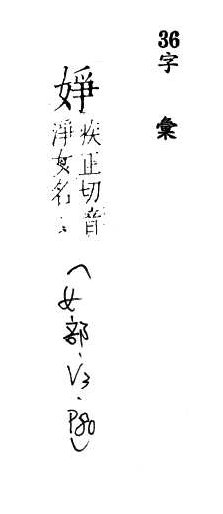 36字彙
婙疾正切音
淨女名〻
(女部.V3.P80)